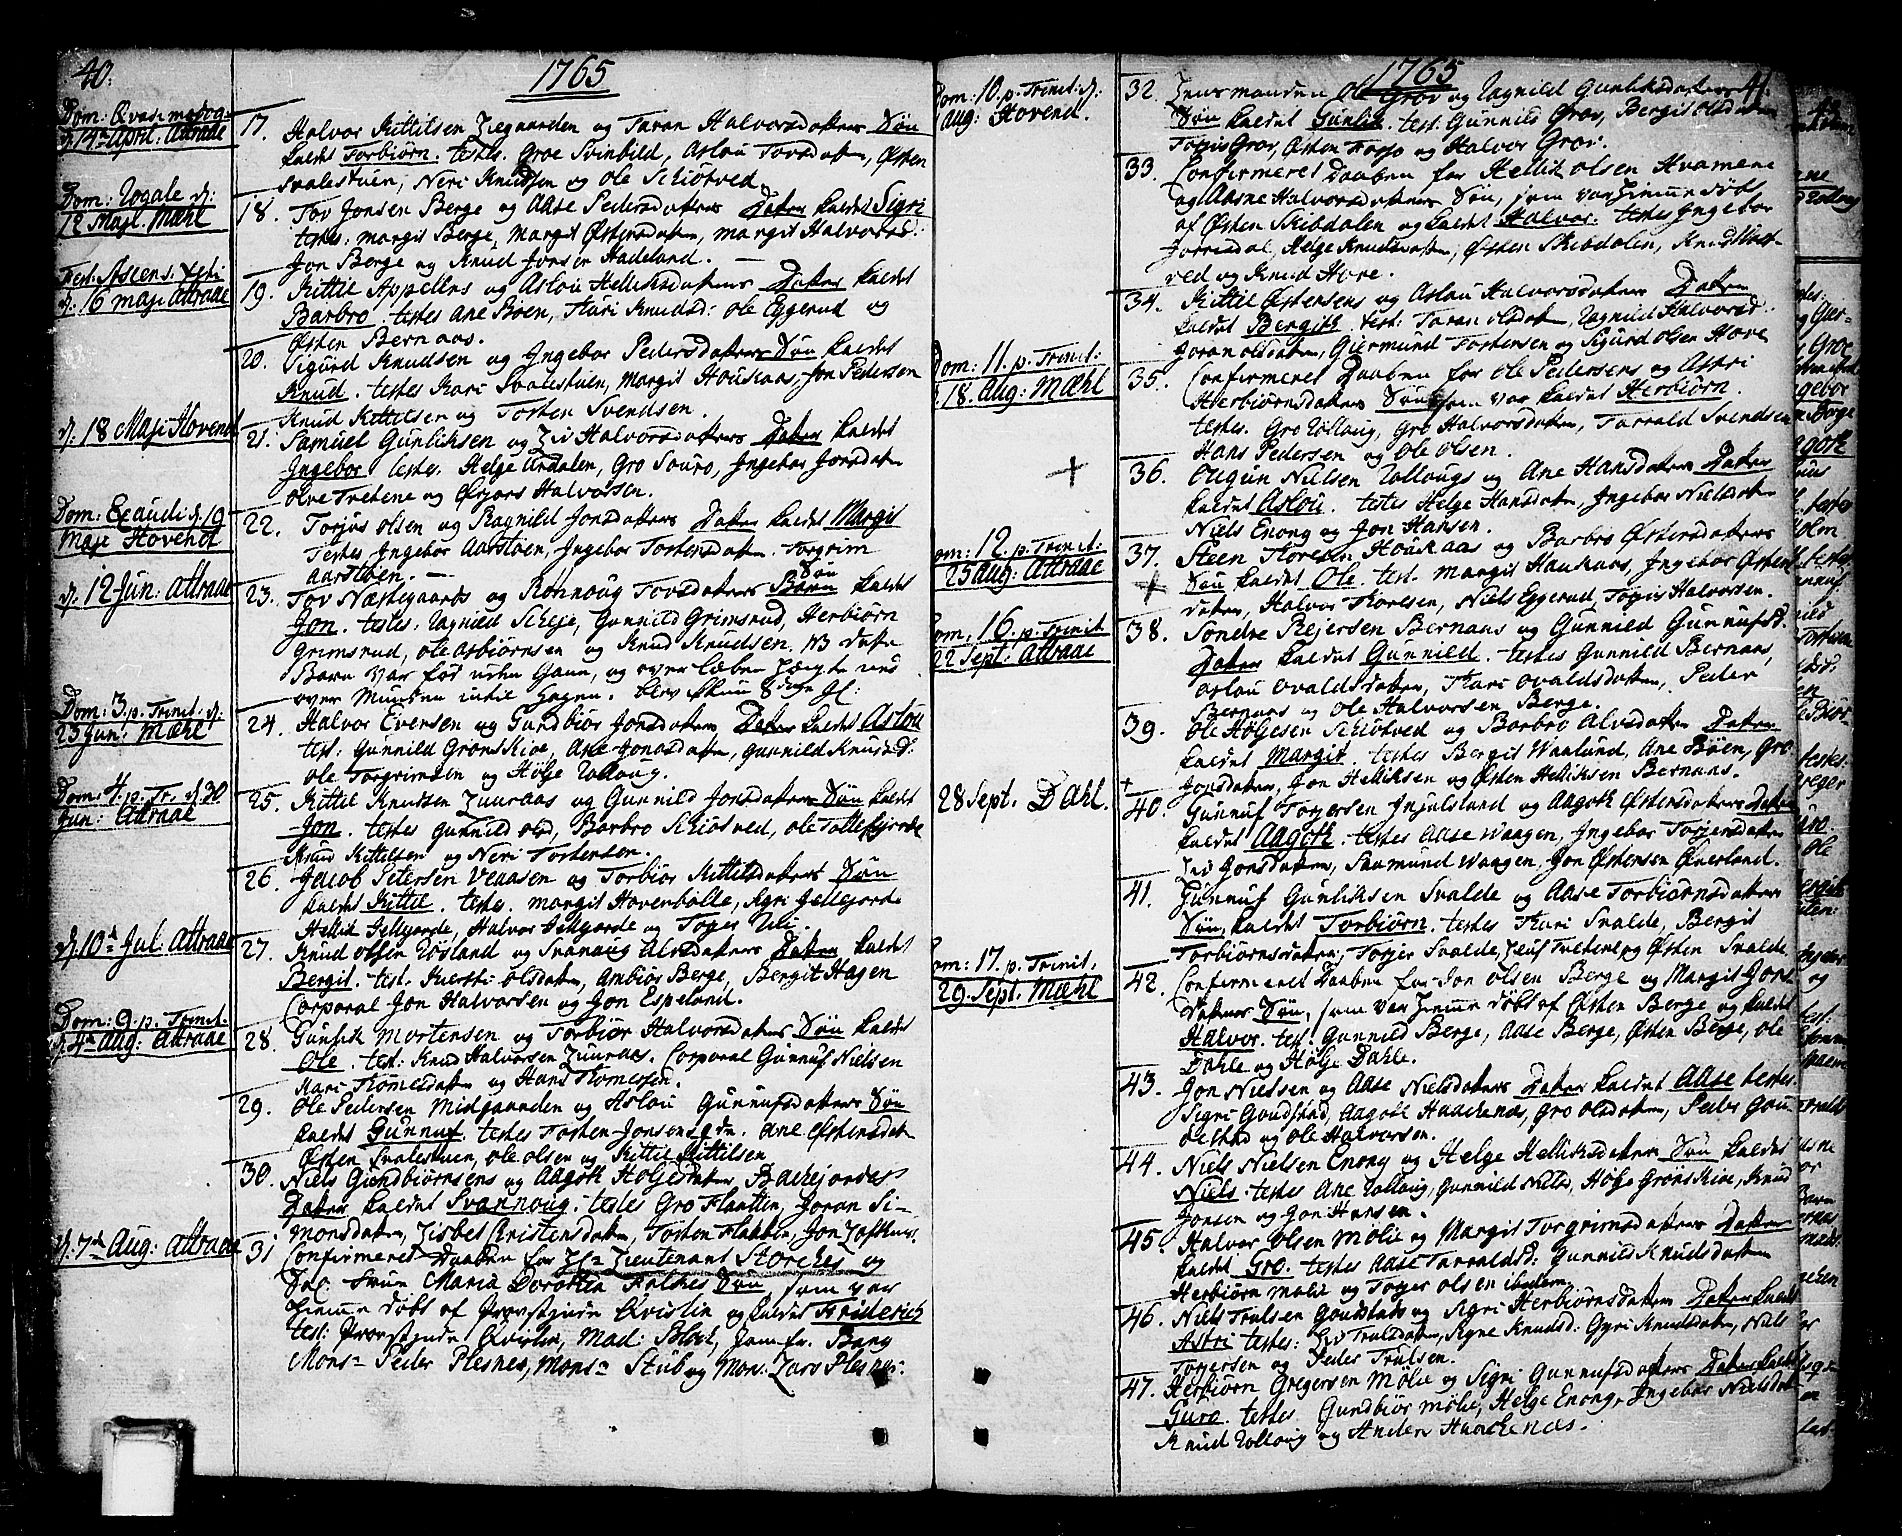 40.
1765
Dom: Qvasimodog:
d. 14de April: Attraae
17. Halvor Kittilsen Ziegaarden og Taran Halvorsdaters Søn
kaldet Torbiørn. testes. Groe Svinbild, Aslou Torsdater, Østen
Svalestuen, Neri Knudsen og Ole Schiøtved
Dom: Rogate d.
12 Maji. Mæhl
18. Tov Jonsen Berge og Aase Pedersdaters Dater kaldet Sigri
testes: Margit Berge, Margit Østensdater, Margit Halvorsd:
Jon Berge og Knud Jonsen Hadeland.
Fest. Ascens. Xsti
d. 16 Maji Attraae
19. Kittil Appellns og Aslou Helliksdaters Dater kaldet
Barbro. testes Ane Bøen, Kari Knudsd: Ole Eggerud og
Østen Bernaas.
20. Sigurd Knudsen og Ingebor Pedersdaters Søn kaldet
Knud. testes Kari Svalestuen, Margit Houkaas, Jon Pedersen
Knud Kittilsen og Torsten Svendsen.
d. 18 Maji Hovend
21. Samuel Gunliksen og Liv Halvorsdaters Dater kaldet
Ingebor testes. Helge Ardalen, Gro Souro, Ingebor Jonsdater
Olve Tvetene og Ørjans Halvorsen.
Dom: Exaudi d. 19
Maji Hovend
22. Torjus Olsen og Ragnild Jonsdaters Dater kaldet Margit
Testes Ingebor Aarstøen, Ingebor Torstensdater. Torgrim
Aarstøen.
d. 12 Jun: Attraae
23. Tov Næstegaards og Rønnoug Torsdaters Søn kaldet
Jon. testes: Ragnild Scheje, Gunnild Grimsrud, Herbiørn
Grimsrud, Ole Asbiørnsen og Knud Knudsen. NB dette
Barn var fød uden Gane, og over Læben
over Munden indtil Hagen. blev ikun 8 dage gl:
Dom: 3. p. Trinit. d.
23 Jun: Mæhl
24. Halvor Eversen og Gundbior Jonsdaters Dater kaldet Aslou
test: Gunnild Grønskioe, Ane Jonsdater, Gunnild Knudsd:
Ole Torgrimsen og Hølje Rolloug.
Dom: 4. p. Tr. d. 30
Jun: Attraae
25. Kittil Knudsen Luuraas og Gunnild Jonsdaters Søn kaldet
Jon. testes Gunnild Olsd, Barbro Schiøtved, Ole Tollefsjorde
Knud Kittilsen og Neri Torstensen.
26. Jacob Petersen Veaasen og Torbiør Kittilsdaters Søn
kaldet Kittil. testes. Margit Hovenbolle, Sigri Jellejorde
Hellik Jellejorde, Halvor Jellejorde og Torger Uli.
d. 10de Jul: Attraae
27. Knud Olsen Røsland og Svanaug Alvsdaters Dater kaldet
Bergit. test. Kiersti Olsdater, Ambiør Berge, Bergit Hagen
Corporal Jon Halvorsen og Jon Espeland.
Dom: 9. p. Trinit.
d. 4de Aug: Attraae
28. Gunlik Mortensen og Torbiør Halvorsdaters Søn kaldet
Ole. test: Knud Halvorsen Luuraas. Corporal Gunnuf Nielsen
Kari Thomesdater og Hans Thomessen.
29. Ole Pedersen Midgaarden og Aslou Gunnufsdaters Søn
kaldet Gunnuf. testes Torsten Jonsens qv. Ane Østensdat
Østen Svalestuen, Ole Olsen og Kittil Kittilsen
30. Niels Gundbiørnsens og Aagoth Høljesdater Bachejordes
Dater kaldet Svannoug. testes Gro Flaatten, Joran Si-
monsdater, Lisbet Cristensdater, Torsten Flaatten, Jon Lofthuus.
d. 7de Aug: Attraae
31 Confirmeret Daaben for Hr. Lieutenant Storches og
Maria Dorothea Falches Søn som var
hiemme døbt af Provstinde Qvislin og kaldet Friderich
test: Provstinde Qvislin, Mad: Bloch, Jomfr. Bang
Mons. Peder Plesnes, Mons. Stub og Mons: Lars Plesner.
1765
41.
Dom: 10. p. Trinit: d.
Aug: Hovend.
32. Huusmanden Ole Grov og Ragnild Gunliksdaters
Søn kaldet Gunlik. test. Gunnild Grov, Bergit Olsdater
Torgis Grov, Østen Torso og Halvor Grov.
33. Confirmeret Daaben for Hellik Olsen Hvamene
og Aasne Halvorsdaters Søn, som var hiemme døbt
af Østen Skibdalen og kaldet Halvor. testes Ingebor
Jorredal, Helge Knudsdater, Østen Skibdalen, Knud
ved og Knud Hove.
34. Kittil Østensens og Aslou Halvorsdaters Dater
kaldet Bergith. test: Taran Olsdater, Ragnild Halvorsd:
Joran Olsdater, Giermund Torstensen og Sigurd Olsen Hove
Dom: 11. p. Trinit:
d. 18. Aug: Mæhl
35. Confirmeret Daaben for Ole Pedersens og Astri
Herbiørnsdaters Søn som var kaldet Herbiørn.
testes. Gro Rolloug, Gro Halvorsdater, Tarrald Svendsen
Hans Pedersen og Ole Olsen.
+
36. Ougun Nielsen Rollougs og Ane Hansdaters Dater
kaldet Aslou. testes Helge Hansdater, Ingebor Nielsdater
Niels Enong og Jon Hansen.
Dom: 12. p. Trinit.
25 Aug: Attraae
37. Steen Thoresen Houkaas og Barbro Østensdaters
+ Søn kaldet Ole. test. Margit Houkaas, Ingebor Østens
dater, Halvor Thoresen, Niels Eggerud, Torgis Halvorsen.
Dom. 16. p. Trinit
22 Sept. Attraae
38. Sondre Rejersen Bernaas og Gunnild Gunnufsd.
Dater kaldet Gunnild. testes Gunnild Bernaas,
Aslou Ovaldsdater, Kari Ovaldsdater, Peder
Bernaas og Ole Halvorsen Berge.
39. Ole Høljesen Schiøtved og Barbro Alvsdaters Dater
kaldet Margit. testes Bergit Waalund, Ane Bøen, Gro
+ Jonsdater, Jon Helliksen og Østen Helliksen Bernaas.
28 Sept. Dahl.
40. Gunnuf Torjersen Injulsland og Aagoth Østensdaters Dater
kaldet Aagoth. testes Aase Waagen, Ingebor Torjersdater
Liv Jonsdater, Saamund Waagen, Jon Østensen Øverland.
41. Gunnuf Gunliksen Svalde og Aase Torbiørnsdaters
Søn kaldet Torbiørn. testes Kari Svalde, Bergit
Torbiørnsdater, Torjer Svalde, Leif Tvetene og Østen Svalde
Dom: 17. p. Trinit.
29. Sept. Mæhl
42. Confirmeret Daaben for Jon Olsen Berge og Margit Jons
Daters Søn, som var hiemme døbt af Østen Berge og kaldet
Halvor. test. Gunnild Berge, Aase Berge, Østen Berge, Ole
Dahle og Hølje Dahle.
43. Jon Nielsen og Aase Nielsdaters Dater kaldet Aase testes.
Sigri Goudstad, Aagoth Haachenæs, Gro Olsdater, Peder Gou
destad og Ole Halvorsen.
44. Niels Nielsen Enong og Helge Helliksdaters Søn kaldet
Niels. testes Ane Rolloug, Gunnild Nielsd, Hølje Grønskioe, Knud
Jonsen og Jon Hansen.
45. Halvor Olsen Mølie og Margit Torgrimsdaters Dater
kaldet Gro. testes Aase Tarraldsd: Gunnild Knudsdater
Herbiørn Mølie og Torger Olsen ibidem
46. Niels Trulsen Goudstads og Sigri Herbiørnsdaters Dater kaldet
Astri testes: Liv Trulsdater, Signe Knudsd: Gyri Knudsdater, Niels
Torjersen og Peder Trulsen.
47. Herbiørn Gregersen Mølie og Sigri Gunnufsdaters Dater kaldet
Guro. testes Gundbiør Mølie, Helge Enong, Ingebor Nielsdat
Knud Rolloug og Anders Haachenæs.